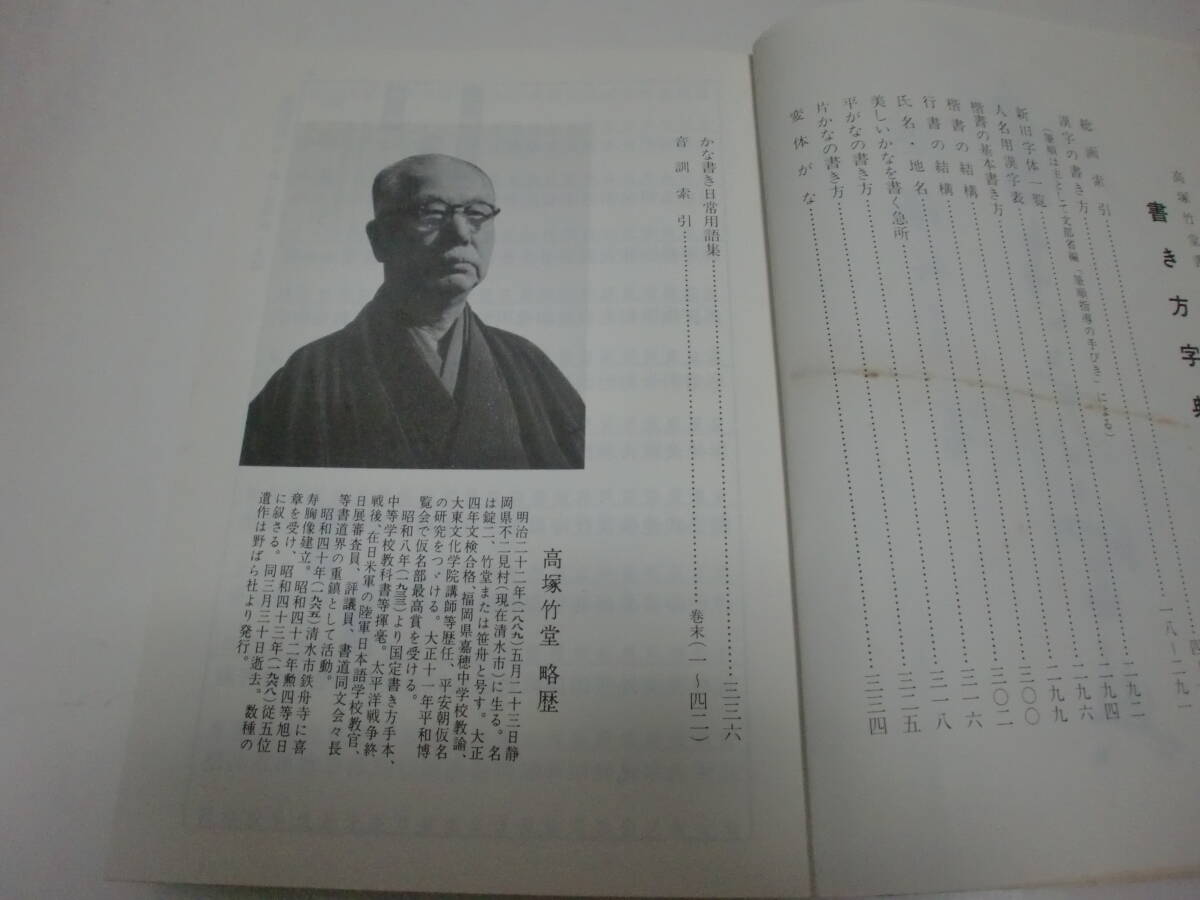 高塚竹堂書
書き方字典
総画索引……四
漢字の書き方……一八～二九一
(筆順は主として文部省編「筆順指導の手びき」による)
新旧字体一覧……二九二
人名用漢字表……二九四
楷書の基本書き方……二九六
楷書の結構……二九九
行書の結構……三〇〇
氏名・地名……三〇二
美しいかなを書く急所……三一六
平がなの書き方……三一八
片かなの書き方……三二五
変体がな……三三四
かな書き日常用語集……三三六
音訓索引……巻末(一～四二)
高塚竹堂 略歴
明治二十二年(一八八九)五月二十三日静
岡県不二見村(現在清水市)に生る。名
は錠二、竹堂または笹舟と号す。大正
四年文検合格、福岡県嘉穂中学校教諭、
大東文化学院講師等歴任、平安朝仮名
の研究をつゞける。大正十一年平和博
覧会で仮名部最高賞を受ける。
昭和八年(一九三三)より国定書き方手本、
中等学校教科書等揮毫。太平洋戦争終
戦後、在日米軍の陸軍日本語学校教官、
日展審査員、評議員、書道同文会々長
等書道界の重鎮として活動。
昭和四十年(一九六五)清水市鉄舟寺に喜
寿胸像建立。昭和四十二年勲四等旭日
章を受け、昭和四十三年(一九六八)従五位
に叙さる。同三月三十日逝去。数種の
遺作は野ばら社より発行。